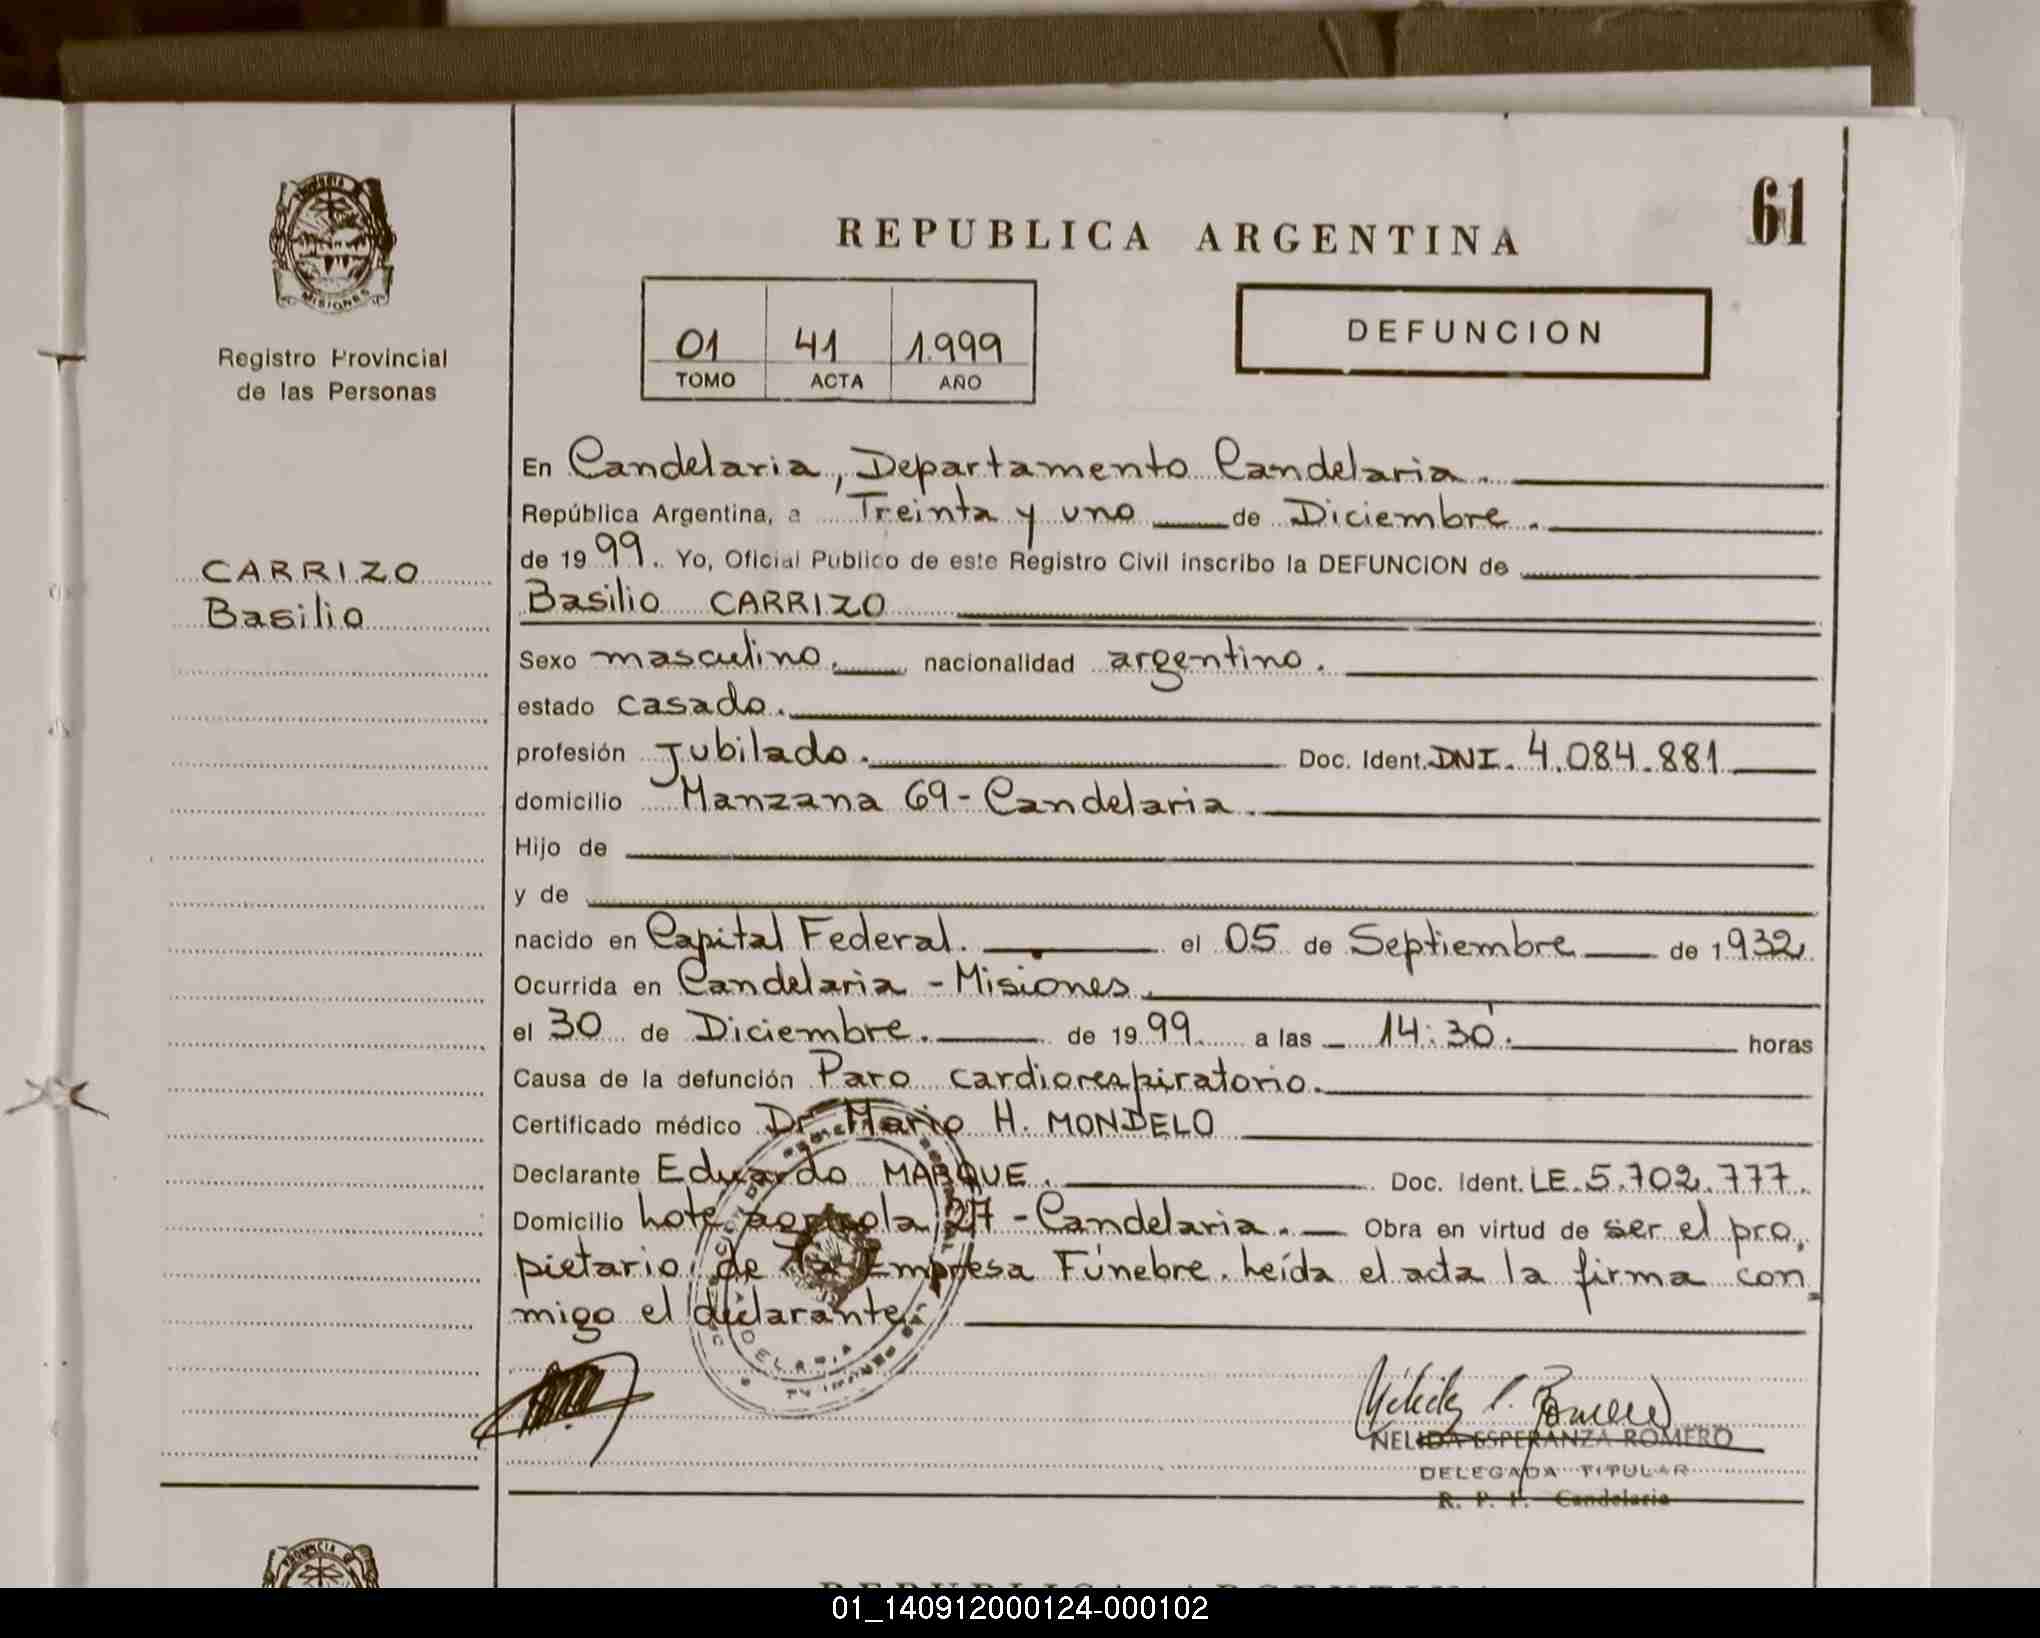 61
REPUBLICA ARGENTINA
MISIONES
Registro Provincial
de las Personas
01 41 1.999
TOMO ACTA AÑO
DEFUNCION
CARRIZO
Basilio
En Candelaria, Departamento Candelaria.
República Argentina, a Treinta y uno de Diciembre.
de 1999. Yo, Oficial Publico de este Registro Civil inscribo la DEFUNCION de
Basilio CARRIZO
Sexo masculino. nacionalidad argentino.
estado casado.
profesión Jubilado. Doc. Ident. DNI. 4.084.881
domicilio Manzana 69 - Candelaria.
Hijo de
y de
nacido en Capital Federal. el 05 de Septiembre de 1932
Ocurrida en Candelaria - Misiones.
el 30 de Diciembre. de 1999. a las 14:30'. horas
Causa de la defunción Paro cardiorespiratorio.
Certificado médico Dr Mario H. MONDELO
Declarante Eduardo MARQUE. Doc. Ident. LE. 5.702.777.
Domicilio Lote agricola 27 - Candelaria. Obra en virtud de ser el pro,
pietario de la Empresa Fúnebre. Leída el acta la firma con
migo el declarante.
NELIDA ESPERANZA ROMERO
DELEGADA TITULAR
R. P. P. Candelaria
PROVINCIA
REPUBLICA ARGENTINA
01_140912000124-000102